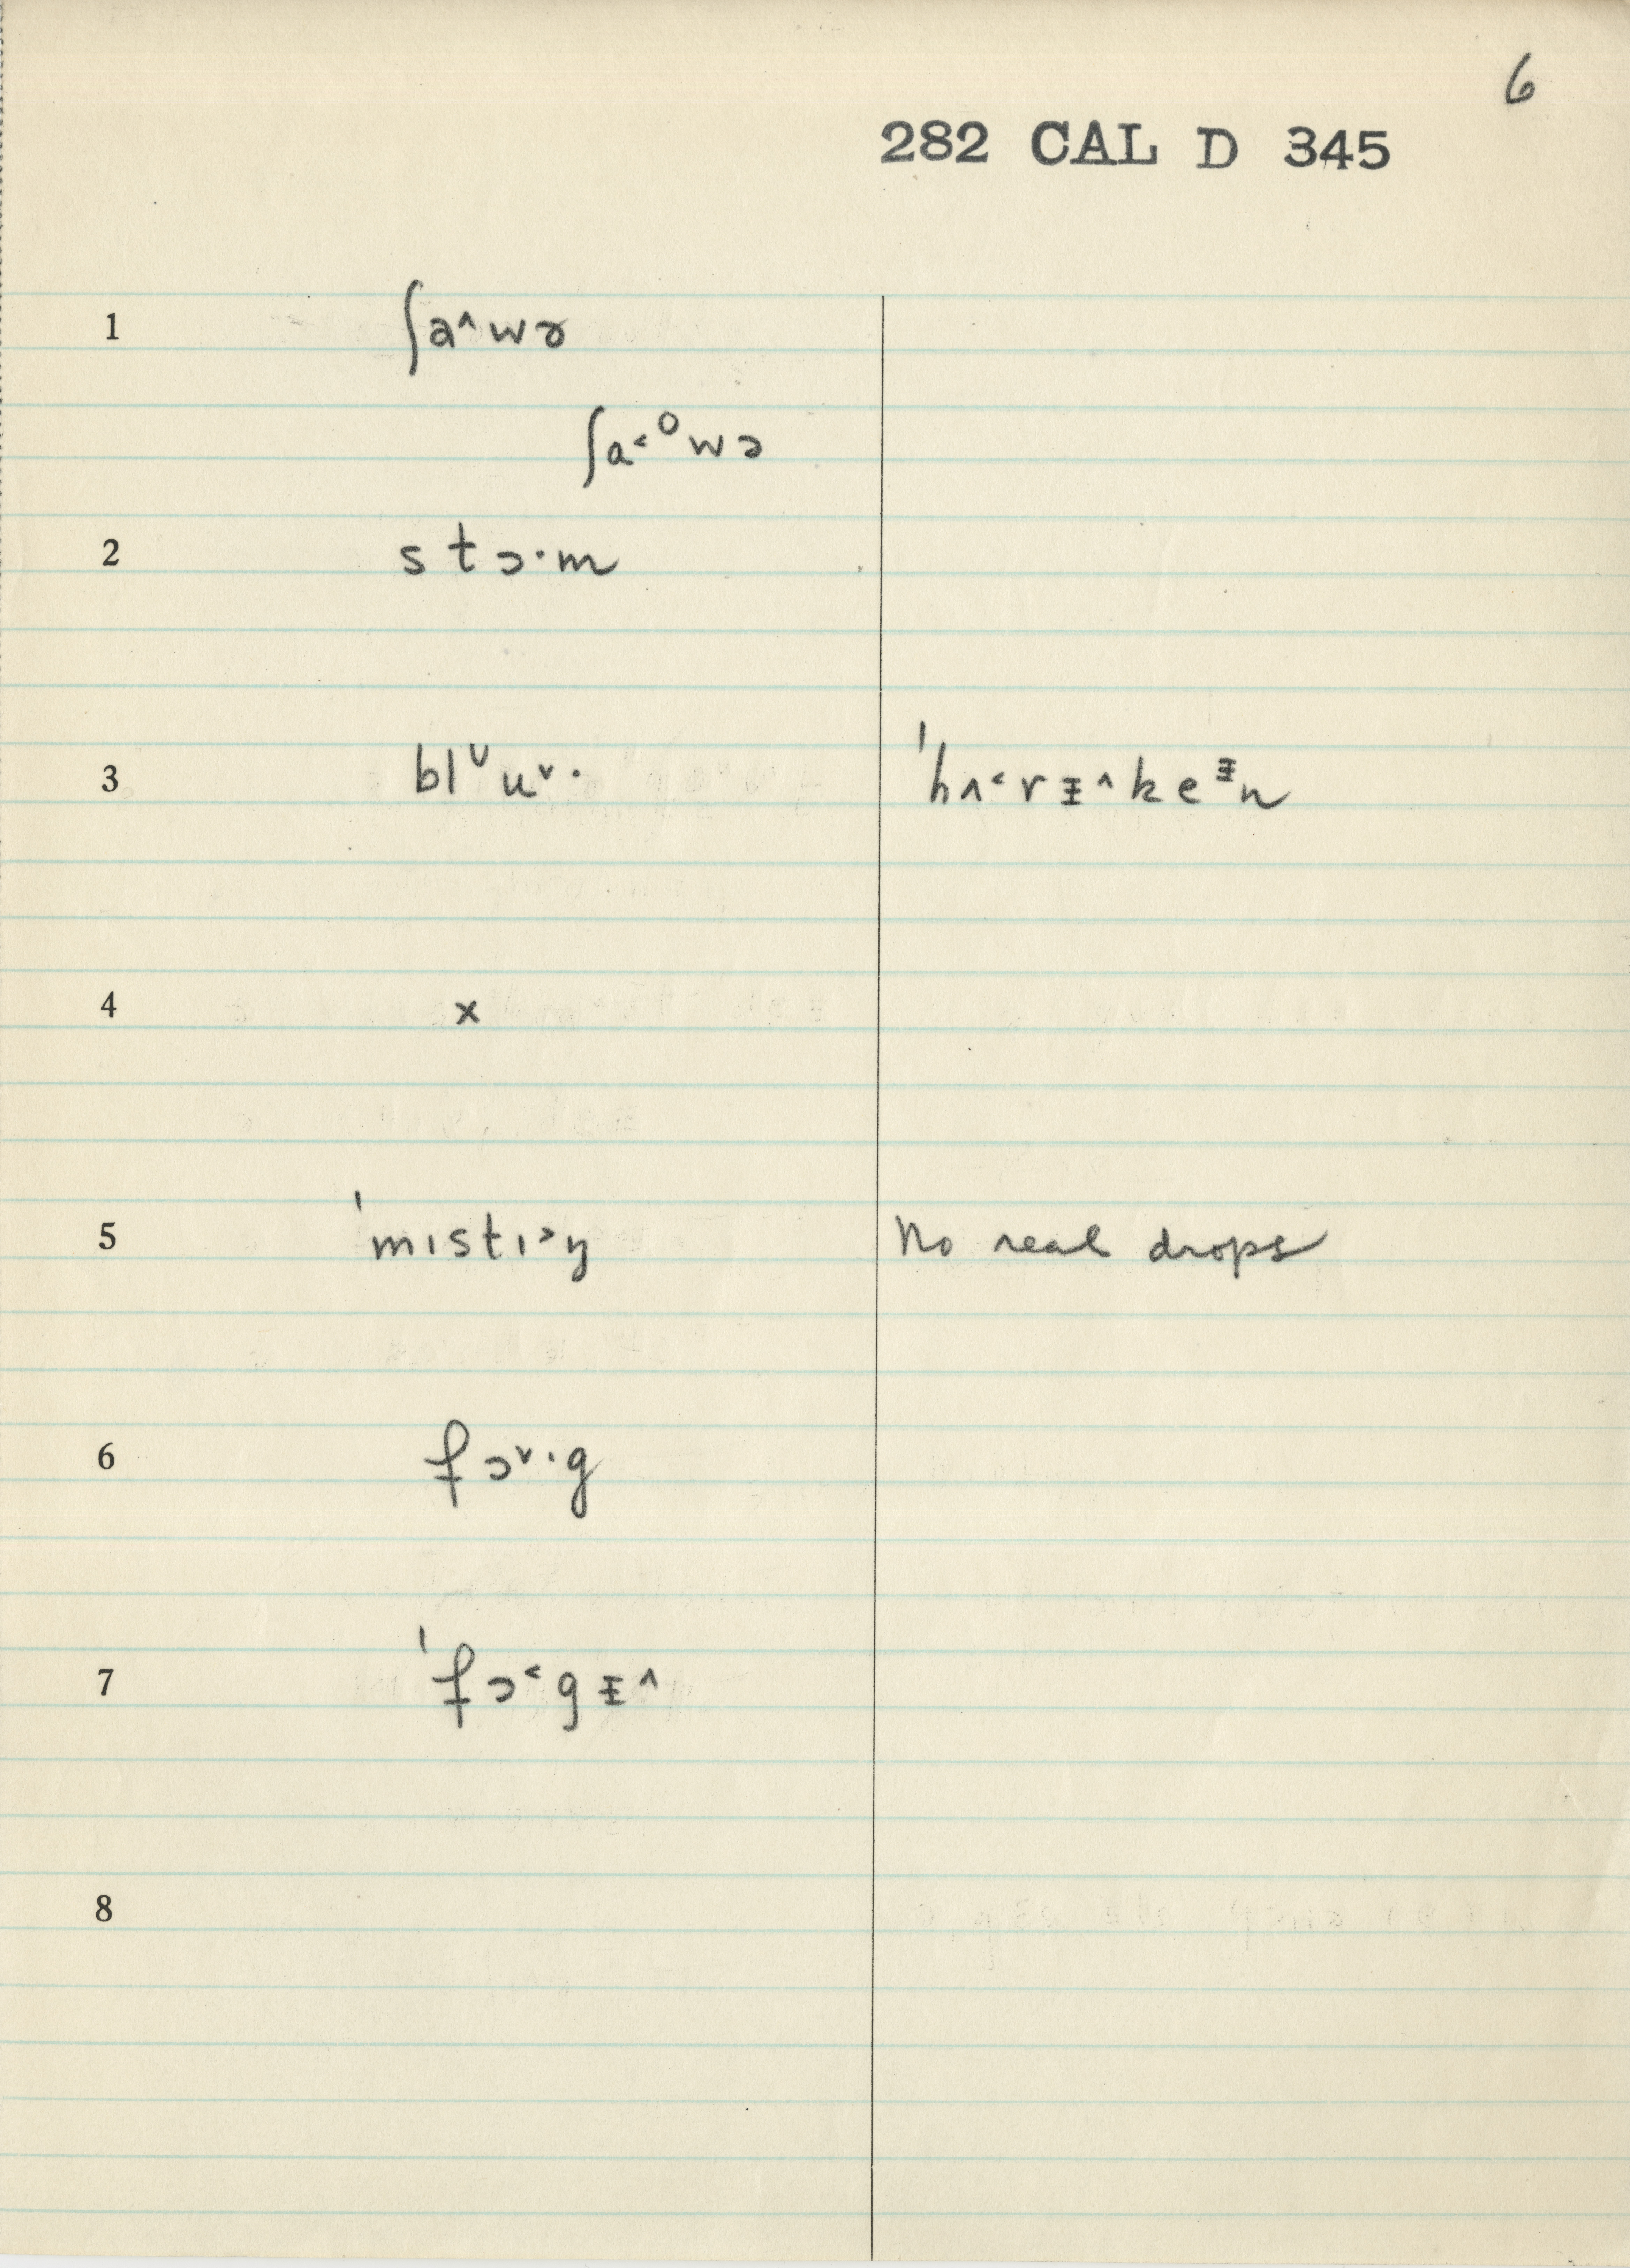 6
282 CAL D 345
1 ʃa^wɚ
ʃa˂ᵒwɔ
2 stɔ·m
3 blᶸu˅· ˈhʌ˂rᵻ^keᵻn
4 x
5 ˈmɪstɪ˃ŋ No real drops
6 fɔ˅·g
7 ˈfɔ˂gᵻ^
8